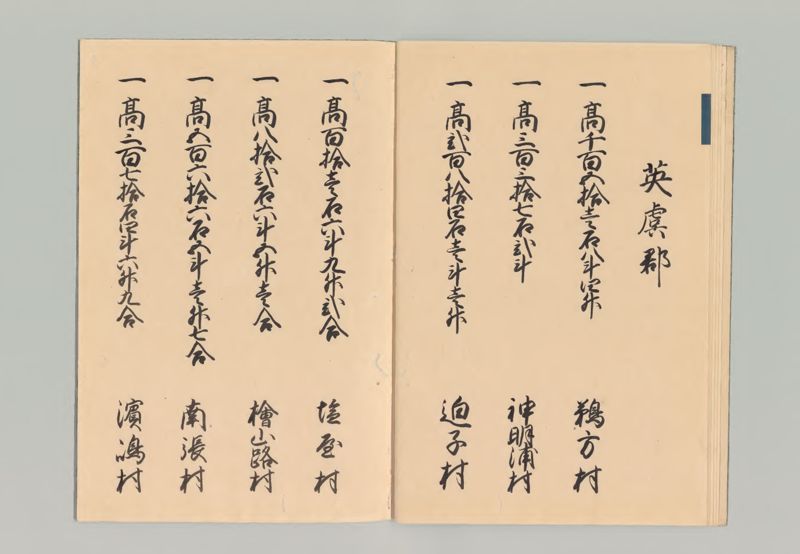 英虞郡
一高千百五拾壱石八斗四升 鵜方村
一高三百三拾七石弐斗 神明浦村
一高弐百八拾四石壱斗壱升 迫子村
一高百拾壱石六斗九升弐合 塩屋村
一高八拾弐石六斗五升壱合 檜山路村
一高五百六拾六石五斗壱升七合 南張村
一高三百七拾石四斗六升九合 濱嶋村